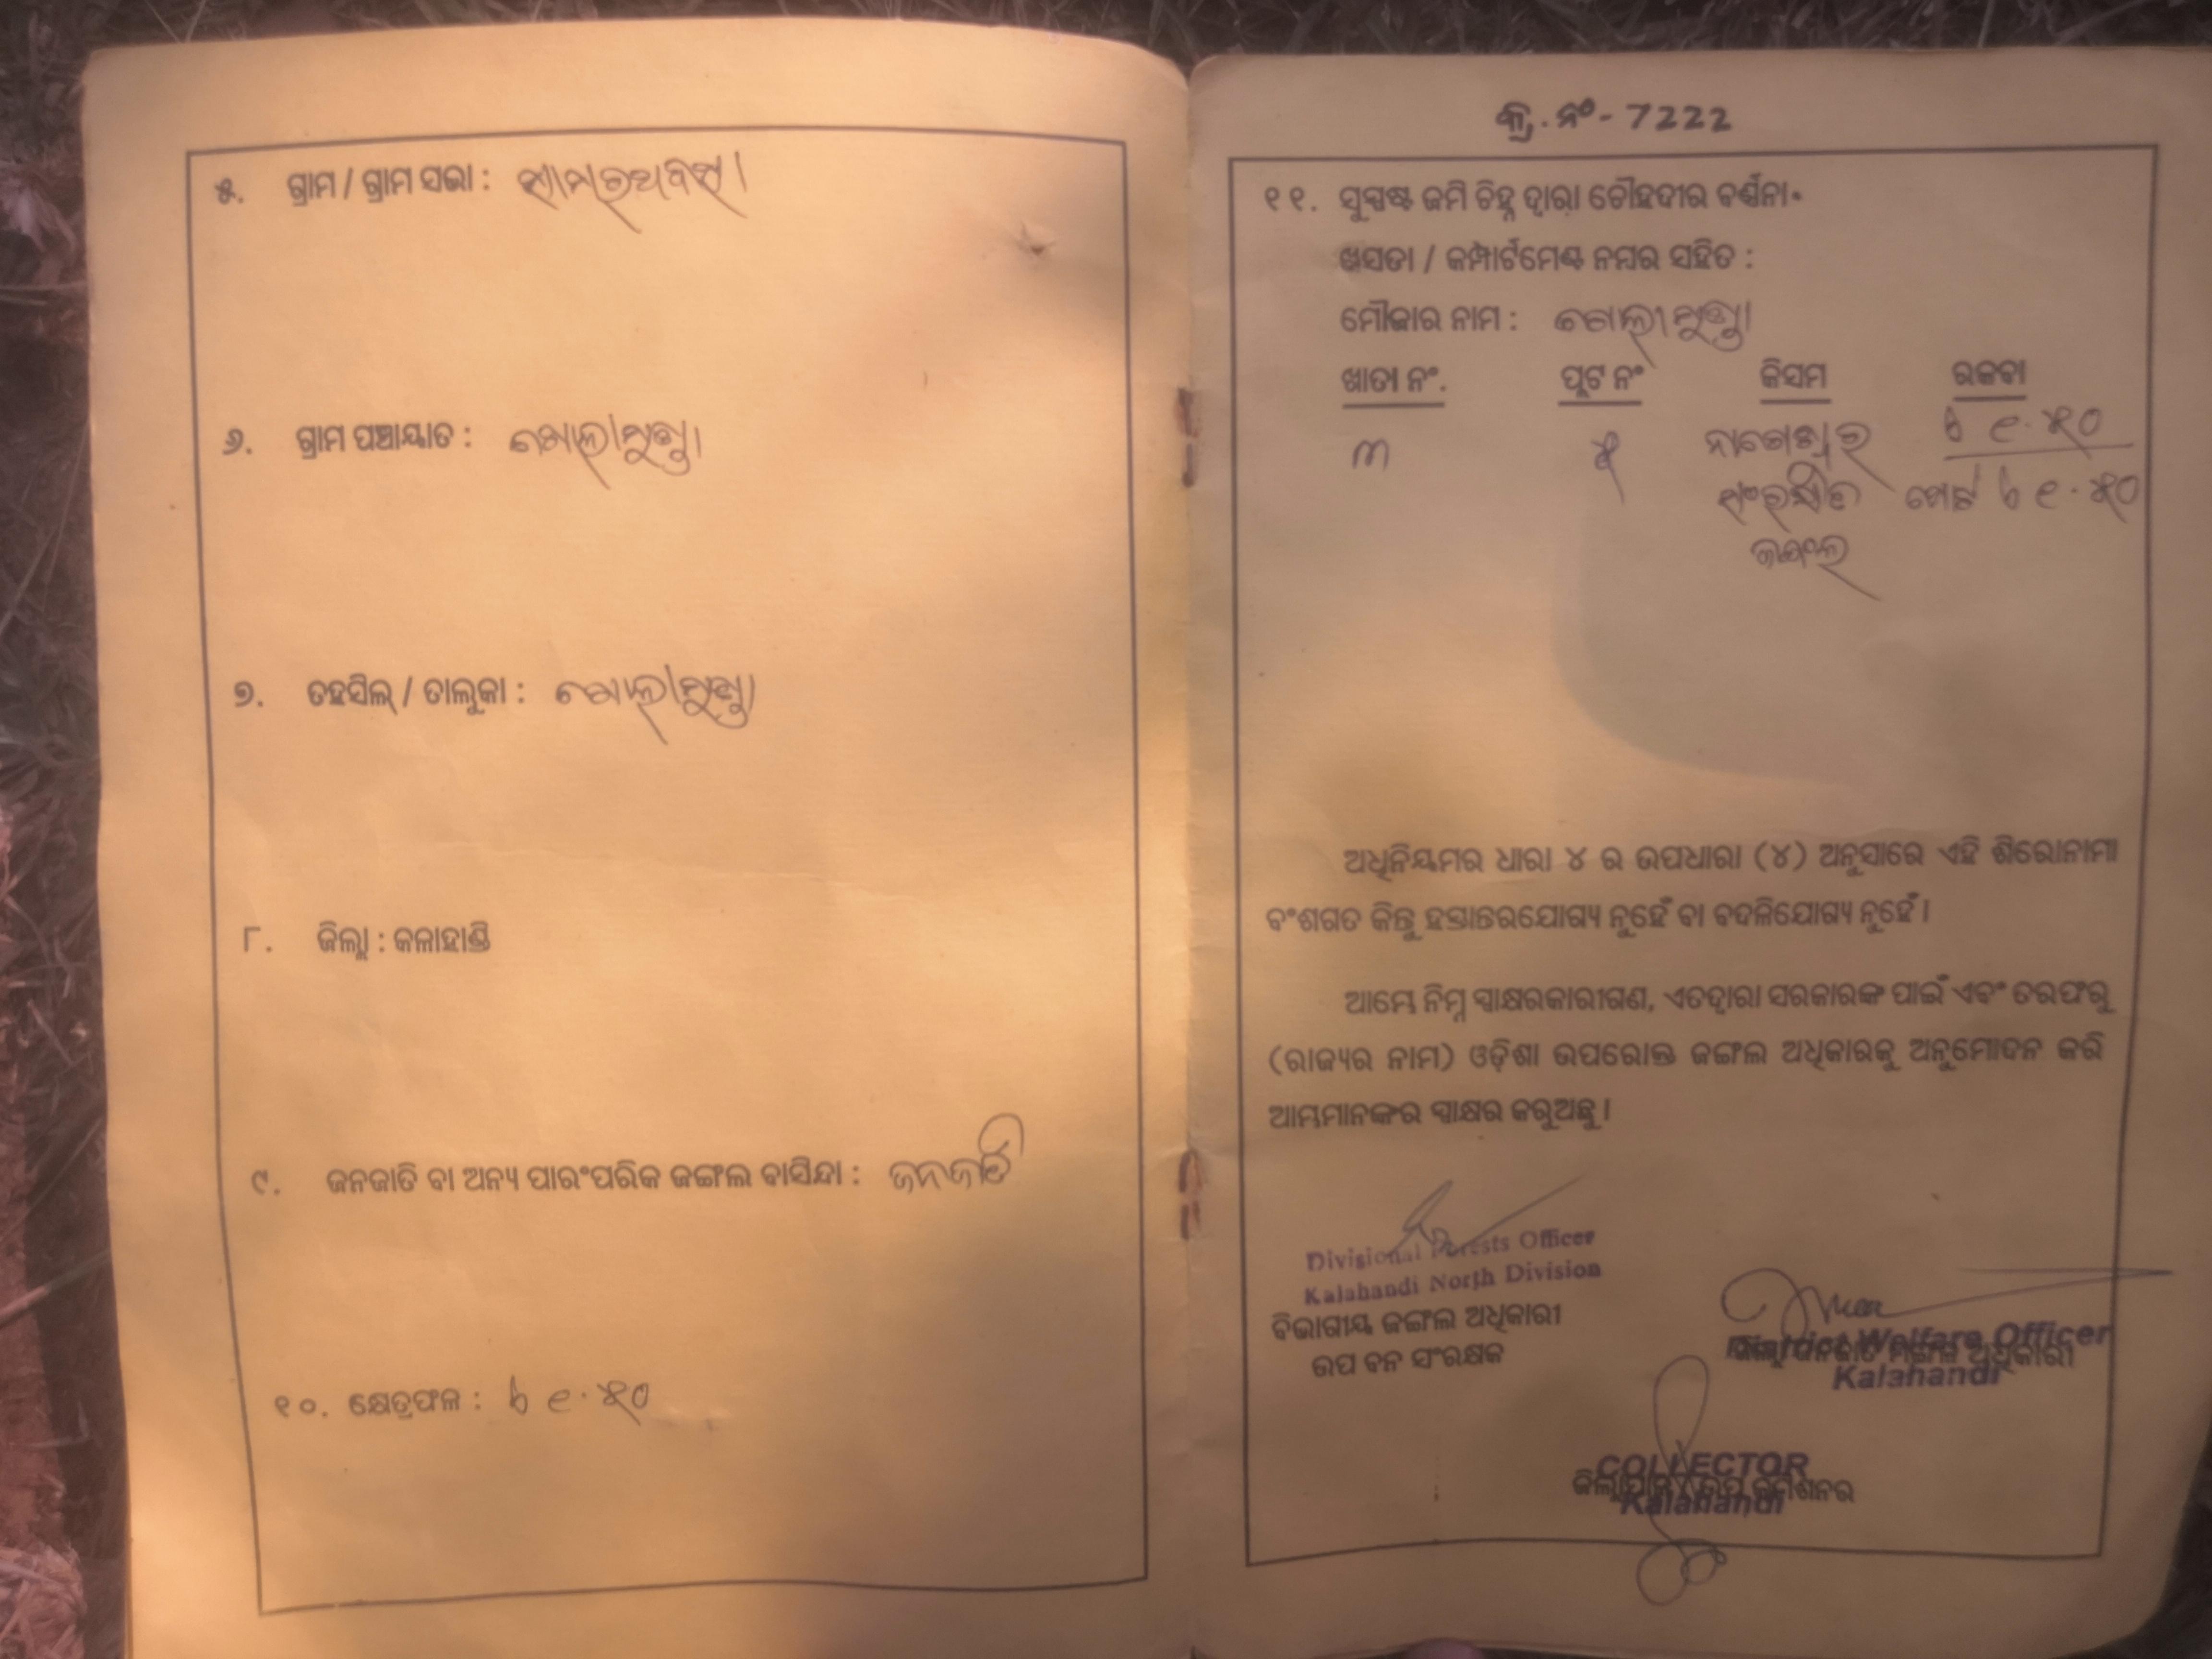 ୫. ଗ୍ରାମ / ଗ୍ରାମ ସଭା :
୬. ଗ୍ରାମ ପଞ୍ଚାୟାତ : ଗୋଲାମୁଣ୍ଡା
୭. ତହସିଲ୍ / ତାଲୁକା : ଗୋଲାମୁଣ୍ଡା
୮. ଜିଲ୍ଲା : କଳାହାଣ୍ଡି
୯. ଜନଜାତି ବା ଅନ୍ୟ ପାରଂପରିକ ଜଙ୍ଗଲ ବାସିନ୍ଦା : ଜନଜାତି
୧୦. କ୍ଷେତ୍ରଫଳ :
କ୍ର. ନଂ - 7222
୧୧. ସୁସ୍ପଷ୍ଟ ଜମି ଚିହ୍ନ ଦ୍ୱାରା ଚୌହଦୀର ବର୍ଣ୍ଣନା
ଖସଡା / କମ୍ପାର୍ଟମେଣ୍ଟ ନମ୍ବର ସହିତ :
ମୌଜାର ନାମ : ଗୋଲାମୁଣ୍ଡା
ଖାତା ନଂ. ପ୍ଲଟ ନଂ କିସମ ରକବା
୩ ୫
ସଂରକ୍ଷିତ ମୋଟ
ଜଙ୍ଗଲ
ଅଧିନିୟମର ଧାରା ୪ ର ଉପଧାରା (୪) ଅନୁସାରେ ଏହି ଶିରୋନାମା
ବଂଶଗତ କିନ୍ତୁ ହସ୍ତାନ୍ତରଯୋଗ୍ୟ ନୁହେଁ ବା ବଦଳିଯୋଗ୍ୟ ନୁହେଁ ।
ଆମ୍ଭେ ନିମ୍ନ ସ୍ୱାକ୍ଷରକାରୀଗଣ, ଏତଦ୍ୱାରା ସରକାରଙ୍କ ପାଇଁ ଏବଂ ତରଫରୁ
(ରାଜ୍ୟର ନାମ) ଓଡ଼ିଶା ଉପରୋକ୍ତ ଜଙ୍ଗଲ ଅଧିକାରକୁ ଅନୁମୋଦନ କରି
ଆମ୍ଭମାନଙ୍କର ସ୍ୱାକ୍ଷର କରୁଅଛୁ ।
Divisional Forests Officer
Kalahandi North Division
ବିଭାଗୀୟ ଜଙ୍ଗଲ ଅଧିକାରୀ
ଉପ ବନ ସଂରକ୍ଷକ
District Welfare Officer
ଜିଲ୍ଲା ଜନଜାତି ମଙ୍ଗଳ ଅଧିକାରୀ
Kalahandi
COLLECTOR
ଜିଲ୍ଲାପାଳ / ଉପ କମିଶନର
Kalahandi